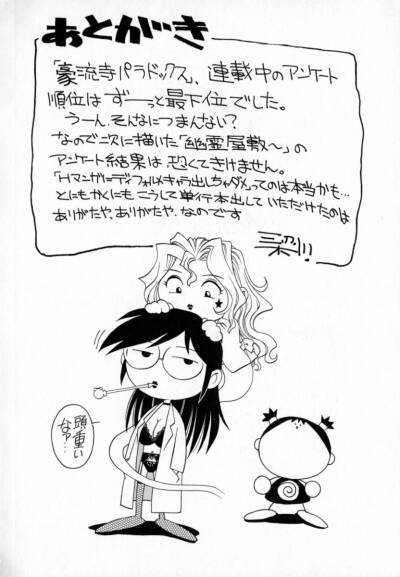 あとがき
「豪流寺パラドックス」、連載中のアンケート
順位はずーっと最下位でした。
うーん、そんなにつまんない?
なので二次に描いた「幽霊屋敷〜」の
アンケート結果は恐くてきけません。
「Hマンガにディフォルメキャラ出しちゃダメ」ってのは本当かも…
とにもかくにもこうして単行本出していただけたのは
ありがたや、ありがたや、なのです
頭重い
なァ…